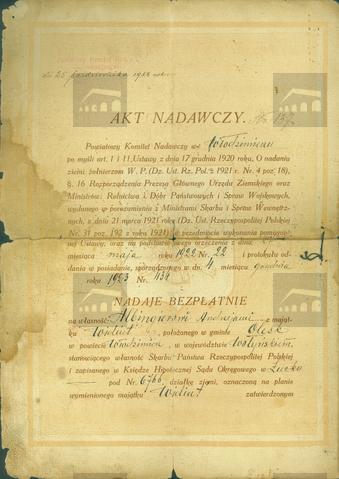 dn. 25 października 1928 roku
AKT NADAWCZY. No
Powiatowy Komitet Nadawczy we Włodzimierzu
po myśli art. 1 i 11 Ustawy z dnia 17 grudnia 1920 roku, O nadaniu
ziemi żołnierzom W. P. (Dz. Ust. Rz. Pol. z 1921 r. Nr. 4 poz. 18),
§. 16 Rozporządzenia Prezesa Głównego Urzędu Ziemskiego oraz
Ministrów: Rolnictwa i Dóbr Państwowych i Spraw Wojskowych,
wydanego w porozumieniu z Ministrami Skarbu i Spraw Wewnętrz-
nych, z dnia 21 marca 1921 roku (Dz. Ust. Rzeczypospolitej Polskiej
Nr. 31 poz. 192 z roku 1921) w przedmiocie wykonania pomienio-
nej Ustawy, oraz na podstawie swego orzeczenia z dnia
miesiąca maja roku 1922 Nr. 22 i protokułu od-
dania w posiadanie, sporządzonego w dn. 4 miesiąca grudnia
roku 1923 Nr. 434
NADAJE BEZPŁATNIE
na własność Albingowski Andrzejowi z mająt-
ku Wieliut położonego w gminie Olesk
w powiecie Włodzimierz, w województwie Wołyńskiem,
stanowiącego własność Skarbu Państwa Rzeczypospolitej Polskiej
i zapisanego w Księdze Hipotecznej Sądu Okręgowego w Łucku
pod Nr. 6766 działkę ziemi, oznaczoną na planie
wymienionego majątku Wieliut zatwierdzonym